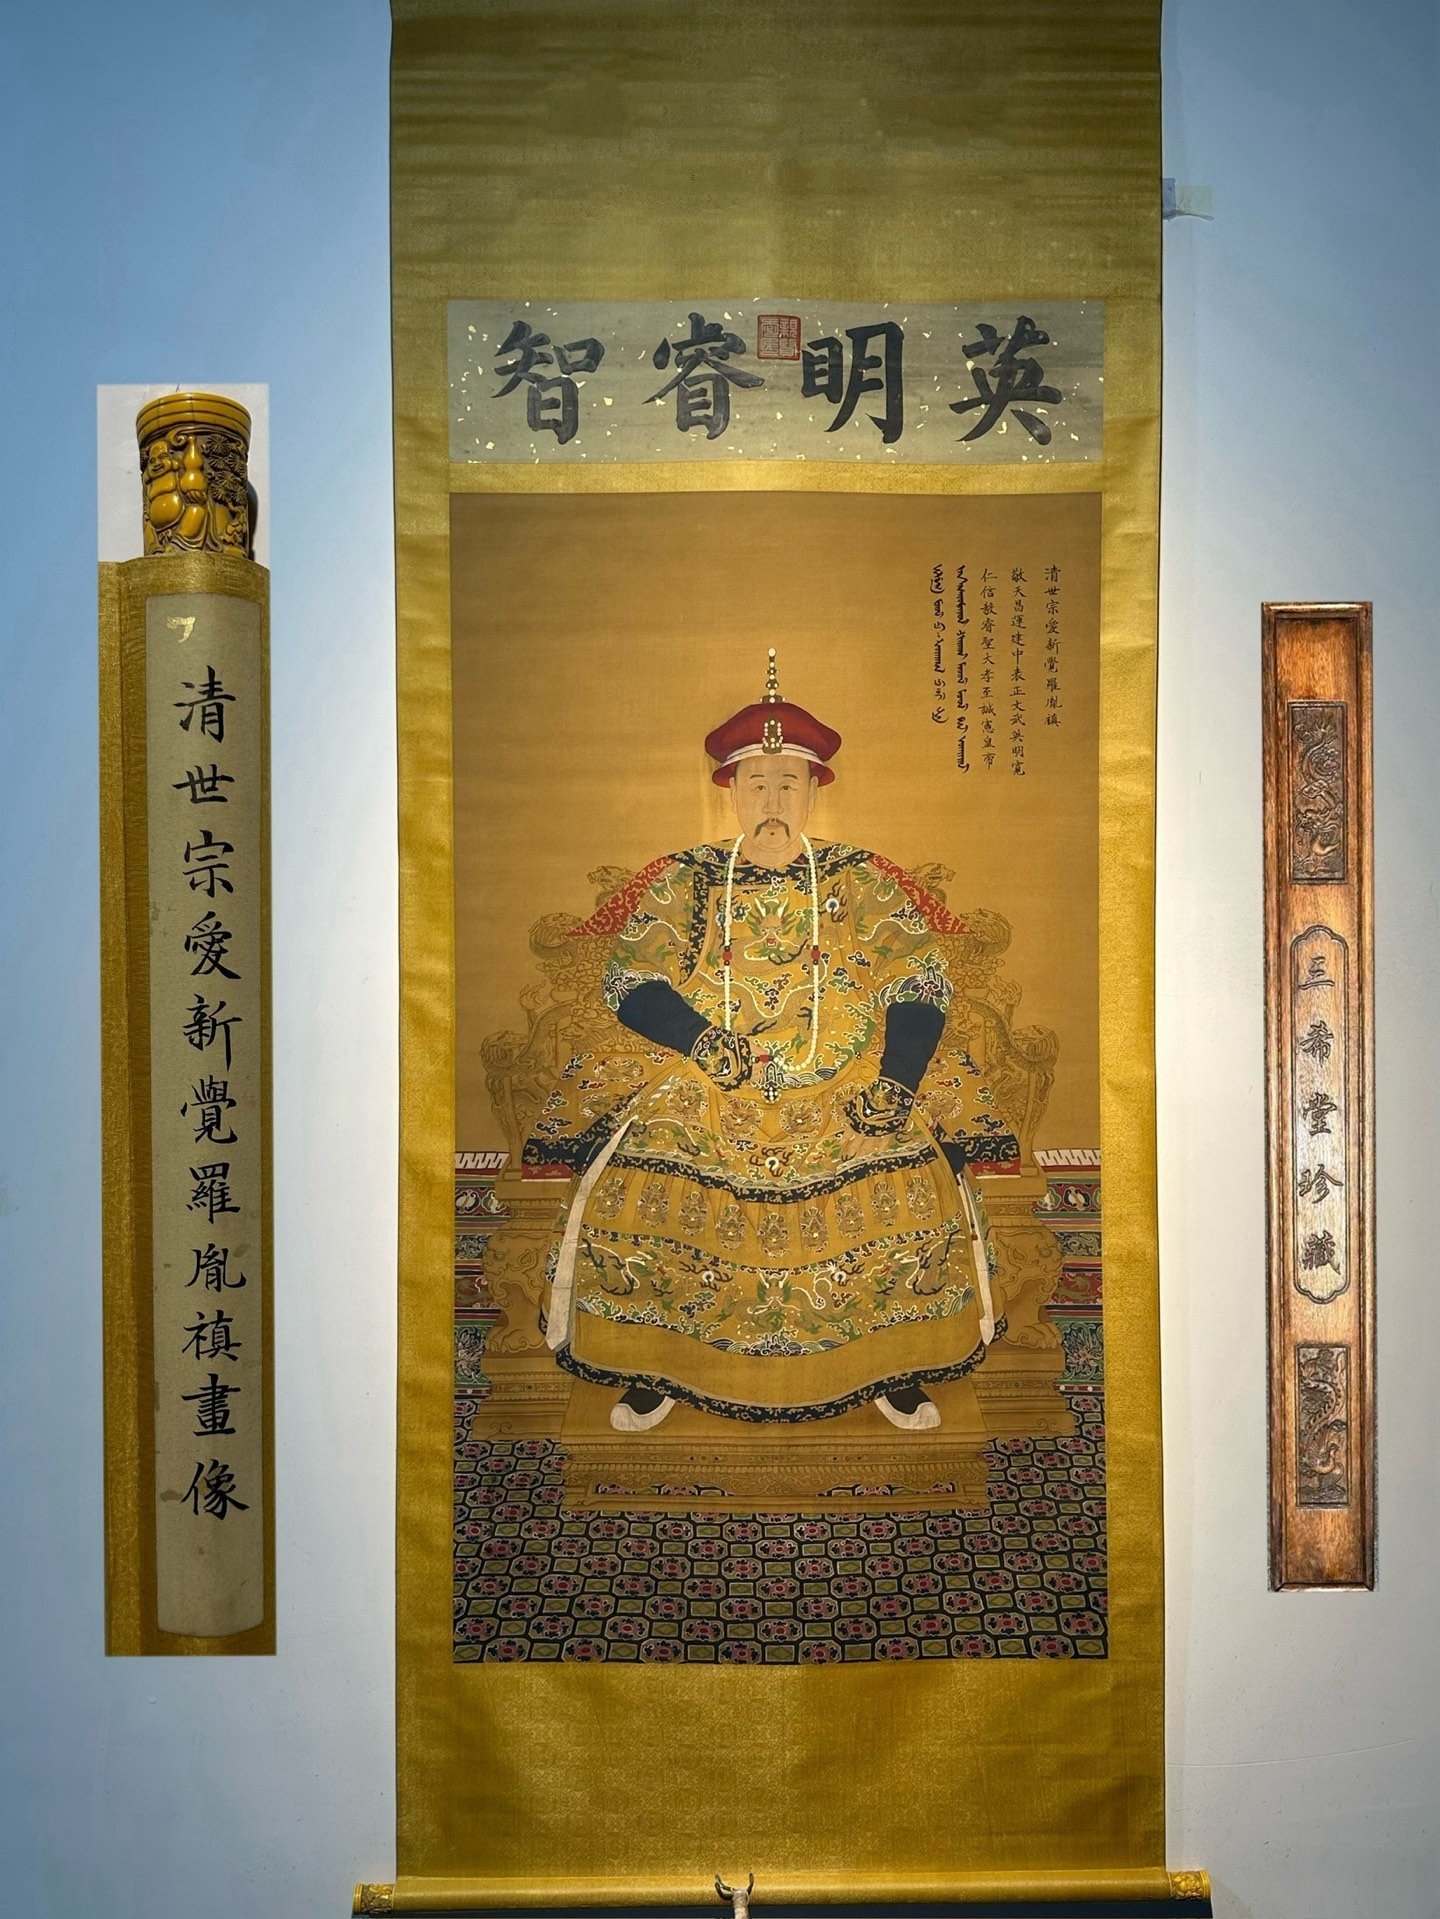 英明睿智
清世宗愛新覺羅胤禛
敬天昌運建中表正文武英明寬
仁信毅睿聖大孝至誠憲皇帝
清世宗愛新覺羅胤禛畫像
三希堂珍藏